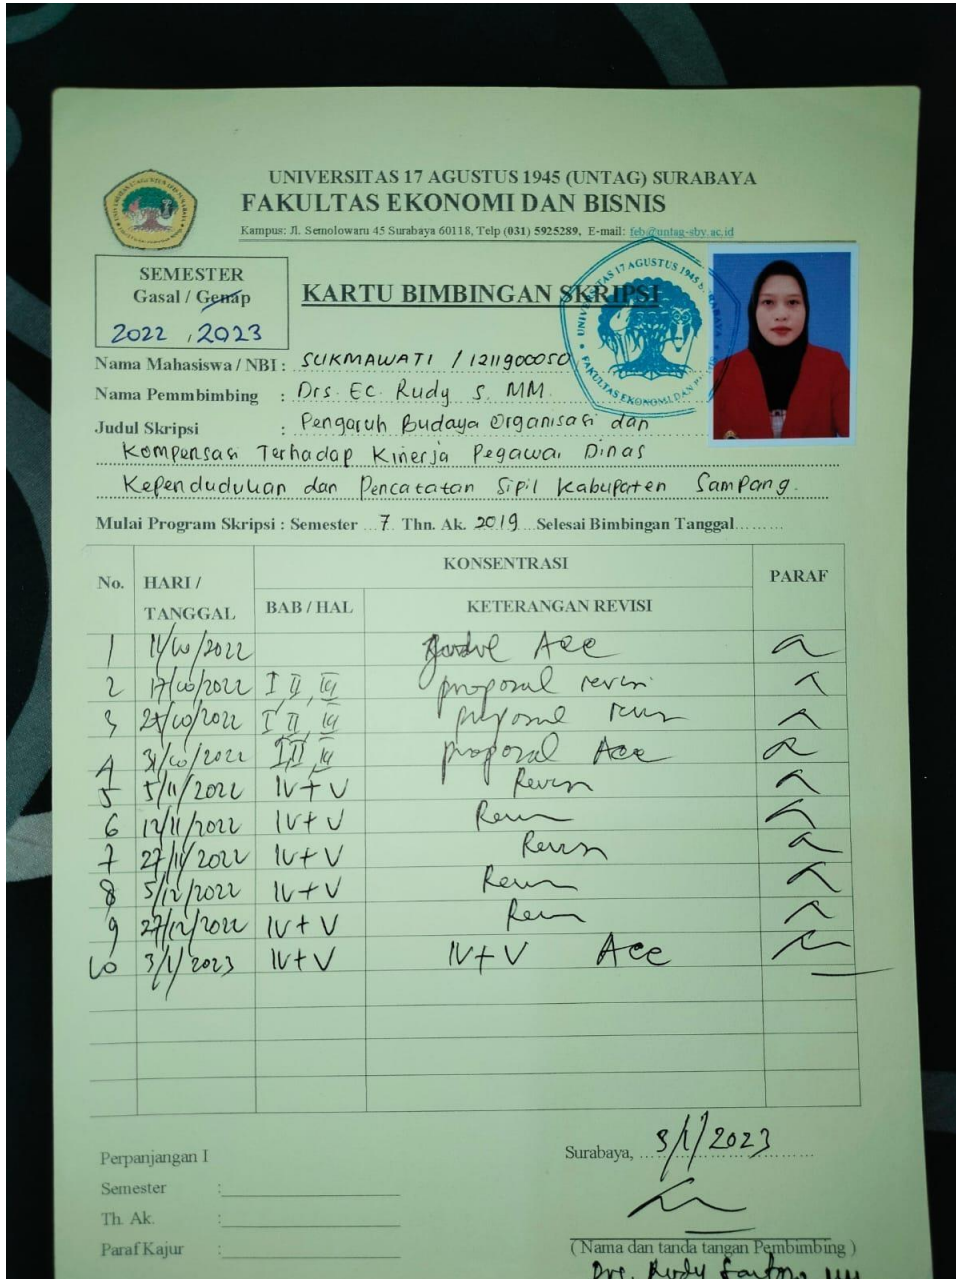 UNIVERSITAS 17 AGUSTUS 1945 (UNTAG) SURABAYA
FAKULTAS EKONOMI DAN BISNIS
Kampus: Jl. Semolowaru 45 Surabaya 60118, Telp (031) 5925289, E-mail: feb@untag-sby.ac.id
SEMESTER
Gasal / Genap
2022 , 2023
KARTU BIMBINGAN SKRIPSI
UNIVERSITAS 17 AGUSTUS 1945
FAKULTAS EKONOMI DAN
Nama Mahasiswa / NBI : SUKMAWATI / 1211900050
Nama Pemmbimbing : Drs. EC. Rudy S. MM.
Judul Skripsi : Pengaruh Budaya Organisasi dan
Kompensasi Terhadap Kinerja Pegawai Dinas
Kependudukan dan Pencatatan Sipil Kabupaten Sampang.
Mulai Program Skripsi : Semester 7 Thn. Ak. 2019 Selesai Bimbingan Tanggal
No. HARI / TANGGAL KONSENTRASI PARAF
BAB / HAL KETERANGAN REVISI
1 11/10/2022 Judul Acc
2 17/10/2022 I, II, III proposal revisi
3 25/10/2022 I, II, III proposal revisi
4 31/10/2022 I, II, III proposal Acc
5 5/11/2022 IV + V Revisi
6 12/11/2022 IV + V Revisi
7 27/11/2022 IV + V Revisi
8 5/12/2022 IV + V Revisi
9 27/12/2022 IV + V Revisi
10 3/1/2023 IV + V IV + V Acc
Perpanjangan I
Surabaya, 3/1/2023
Semester :
Th. Ak. :
Paraf Kajur :
( Nama dan tanda tangan Pembimbing )
Drs. Rudy Santoso MM